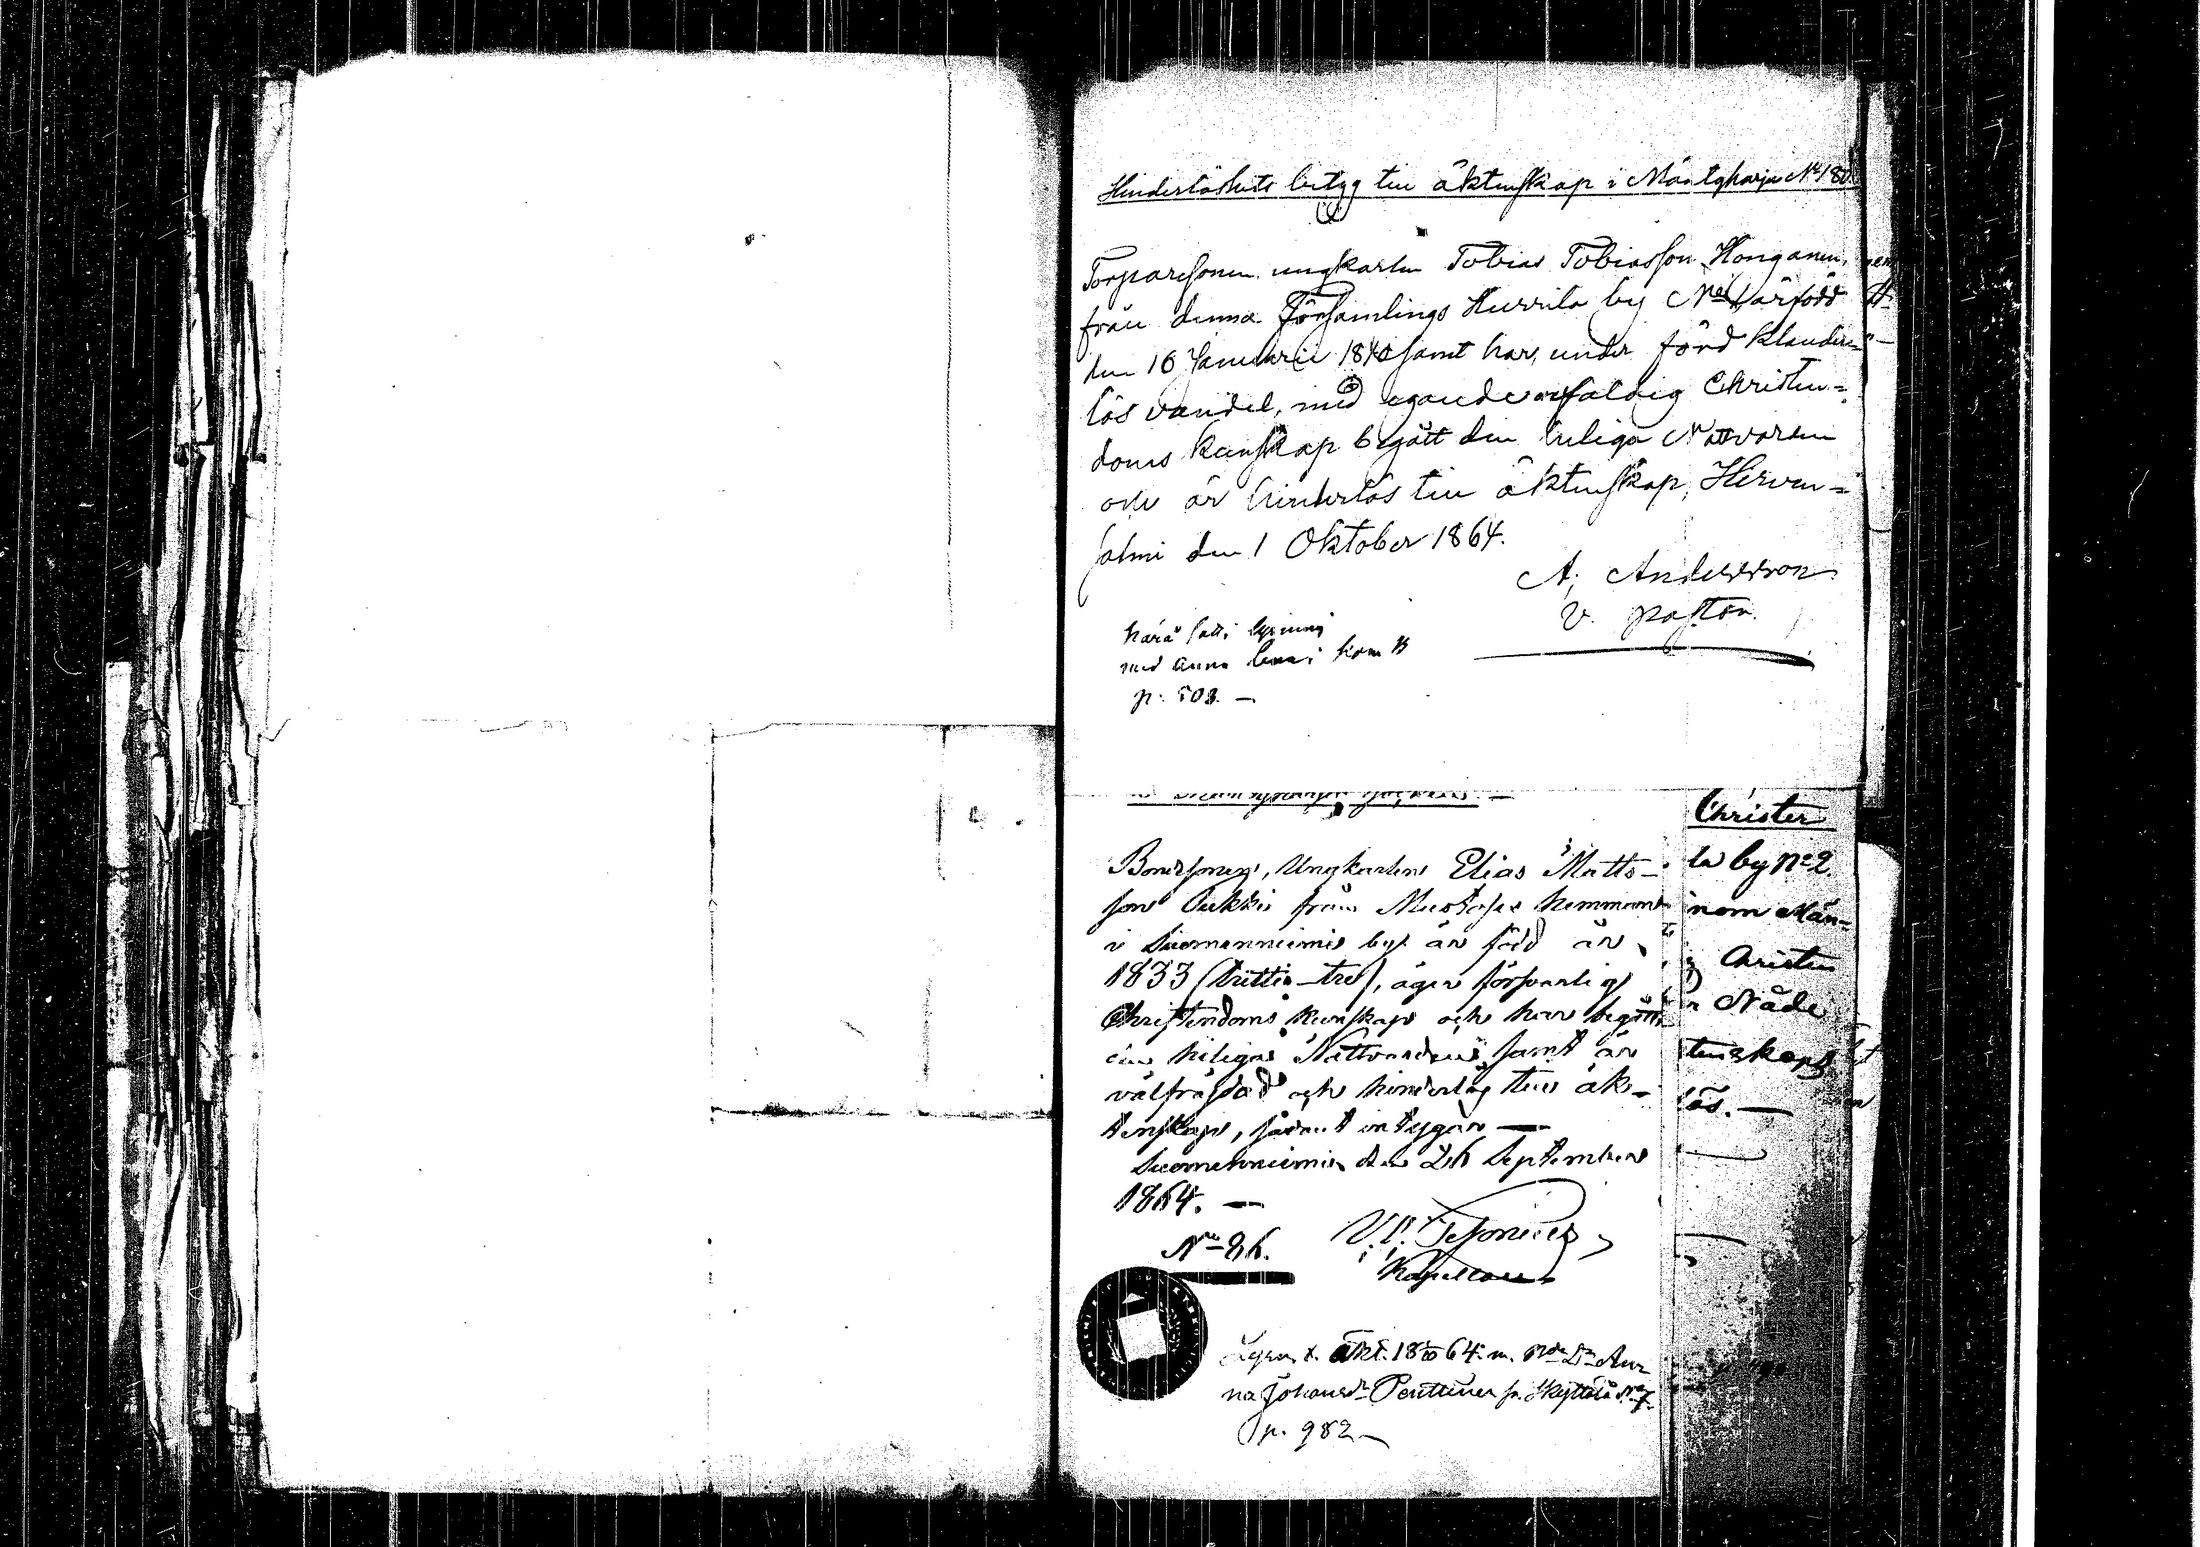 Hinderlöshets betyg till äktenskap i Mäntyharju No 180
Torparesonen ungkarlen Tobias Tobiasson Honganen,
från denna Församlings Hurrila by No 1, är född
den 16 Januarii 1840 samt har, under förd klander=
lös vandel, med egande
 Christen=
doms kunskap begått den heliga Nattvarden
och är hinderlös till äktenskap, Hirven=
salmi den 1 Oktober 1864.
A. Andersson
v. pastor.
lysning
med Anna
p. 508. —
Bondsonen, Ungkarlen Elias Matts-
son Pukki från hemman
i Suomenniemi by är född år
1833 (trettio-tre), äger försvarlig
Christendoms kunskap och har begått
den heliga Nattvarden, samt är
välfräjdad och hinderlös till äk-
tenskap, intygar —
Suomenniemi den 26 September
1864. —
No 86.
Kapellan
Lysn. t. äkt. 18 64. m. An
na Johansdr Penttinen fr. Skyttälä No 7.
p. 982. —
Christen
la by No 2
nom Män-
Christen
a Nåde
tenskaps
lös. —